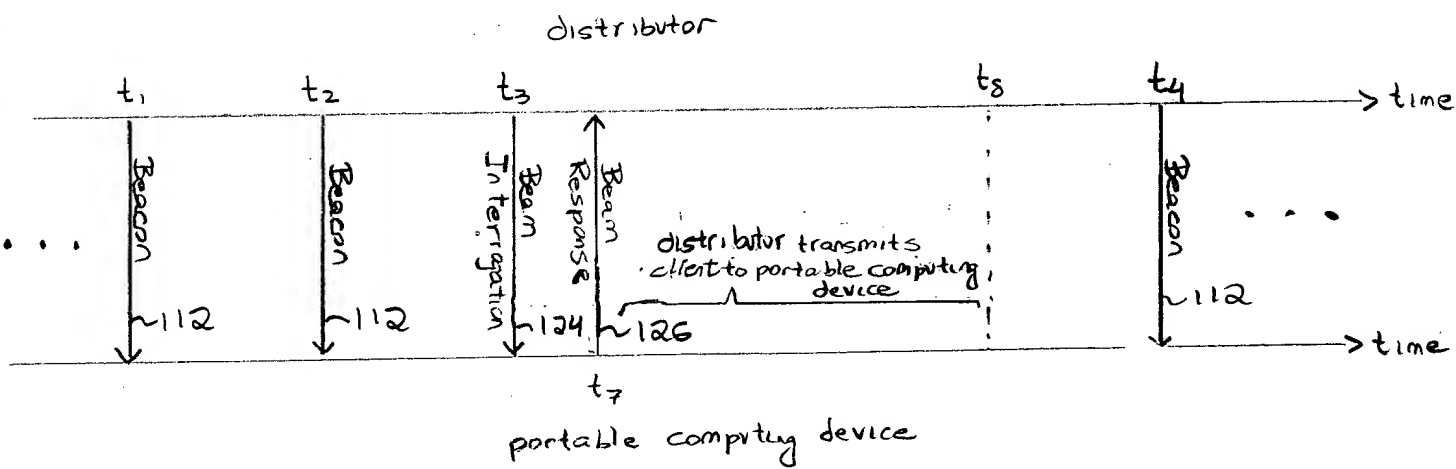 distributor
t1 t2 t3 t8 t4
time
Beacon
Beacon
Beam
Interrogation
Beam
Response
Beacon
distributor transmits
client to portable computing
device
112
112
124
126
112
time
t7
portable computing device